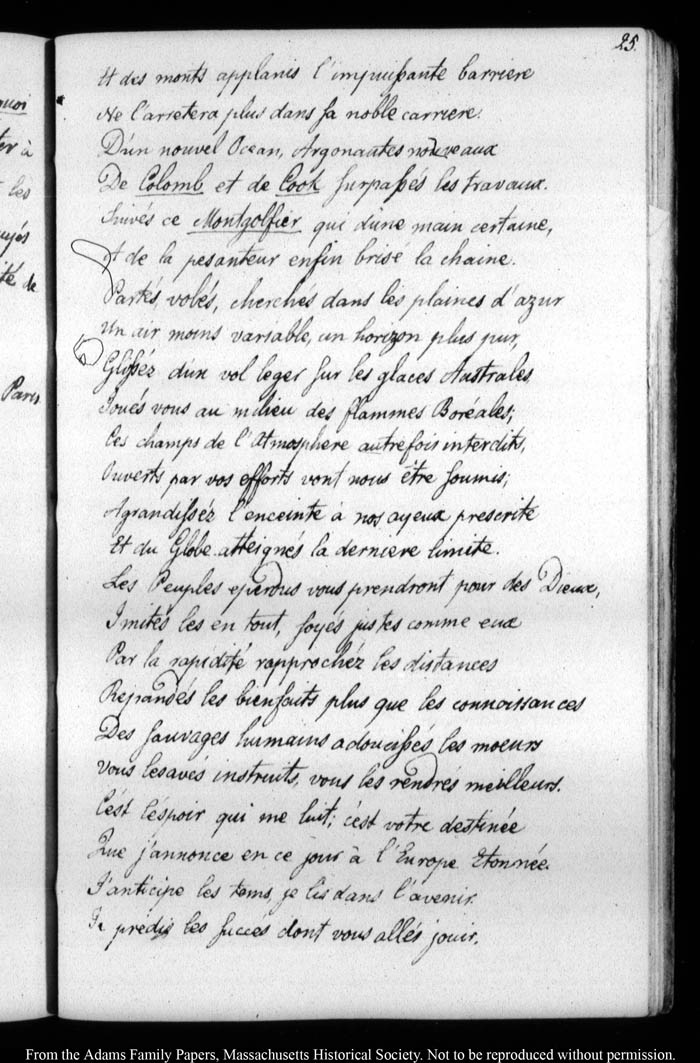 25.
Et des monts applanis l'impuissante barriere
Ne l'arretera plus dans sa noble carriere.
D'un nouvel Ocean, Argonautes nouveaux
De Colomb et de Cook surpassés les travaux.
Suivés ce Montgolfier qui d'une main certaine,
A de la pesanteur enfin brisé la chaine.
Partés, volés, cherchés dans les plaines d'azur
Un air moins variable, un horizon plus pur,
Glissez d'un vol leger sur les glaces Australes,
Joués vous au milieu des flammes Boréales;
Ces champs de l'Atmosphere autrefois interdits,
Ouverts par vos efforts vont nous être soumis;
Agrandissez l'enceinte à nos ayeux prescrite
Et du Globe atteignés la derniere limite.
Les Peuples eperdus vous prendront pour des Dieux,
Imités les en tout, soyés justes comme eux
Par la rapidité rapprochéz les distances
Repandés les bienfaits plus que les connoissances
Des sauvages humains adoucissés les moeurs
Vous les avés instruits, vous les rendrés meilleurs.
C'est l'espoir qui me luit; c'est votre destinée
Que j'annonce en ce jour à l'Europe Etonnée.
J'anticipe les tems, je lis dans l'avenir.
Je prédis les succés dont vous allés jouir.
quoi
à
les
té de
Paris
From the Adams Family Papers, Massachusetts Historical Society. Not to be reproduced without permission.